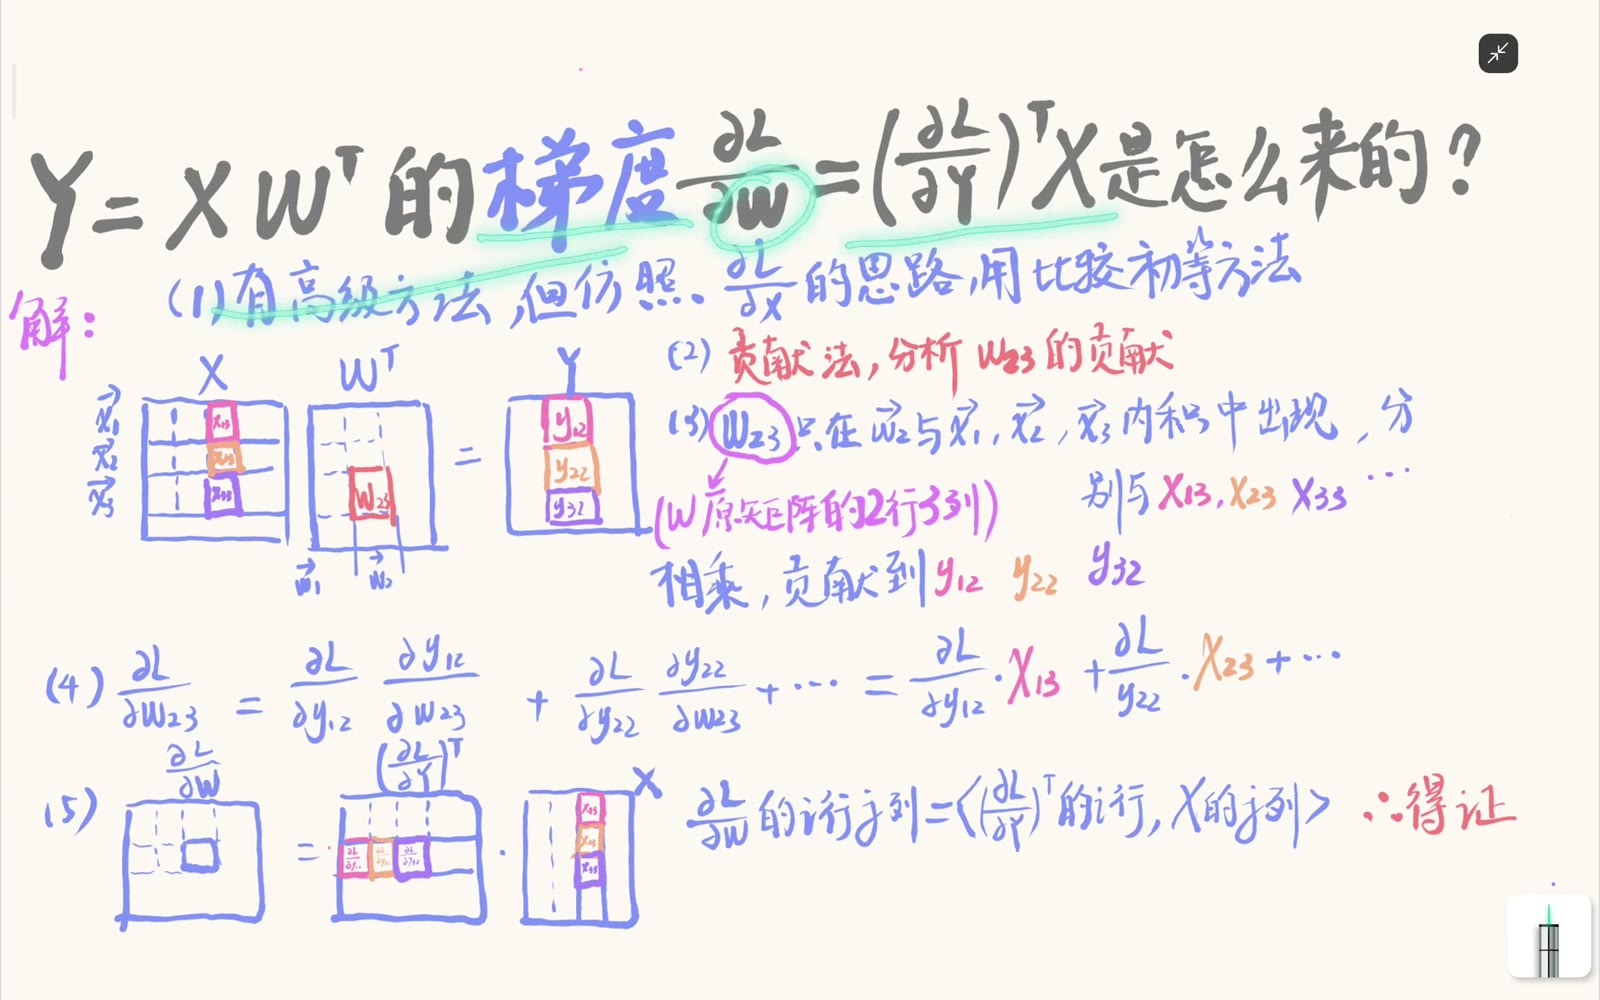 Y = X Wᵀ 的梯度 ∂L/∂W = (∂L/∂Y)ᵀ X 是怎么来的?
解:
(1) 有高级方法,但仿照 ∂L/∂X 的思路,用比较初等方法
X Wᵀ Y
x⃗₁ x₁₃ y₁₂
x⃗₂ x₂₃ = y₂₂
x⃗₃ x₃₃ W₂₃ y₃₂
w⃗₁ w⃗₂
(2) 贡献法,分析 W₂₃ 的贡献
(3) W₂₃ 只在 w⃗₂ 与 x⃗₁, x⃗₂, x⃗₃ 内积中出现,分
别与 X₁₃, X₂₃ X₃₃ ...
(W原矩阵的2行3列)
相乘,贡献到 y₁₂ y₂₂ y₃₂
(4) ∂L/∂W₂₃ = ∂L/∂y₁₂ ∂y₁₂/∂W₂₃ + ∂L/∂y₂₂ ∂y₂₂/∂W₂₃ + ... = ∂L/∂y₁₂ · X₁₃ + ∂L/y₂₂ · X₂₃ + ...
∂L/∂W (∂L/∂Y)ᵀ X
(5) = ∂L/∂y₁₂ ∂L/∂y₂₂ ∂L/∂y₃₂ · x₁₃ x₂₃ x₃₃
∂L/∂W 的i行j列 = <(∂L/∂Y)ᵀ 的i行, X的j列> ∴得证